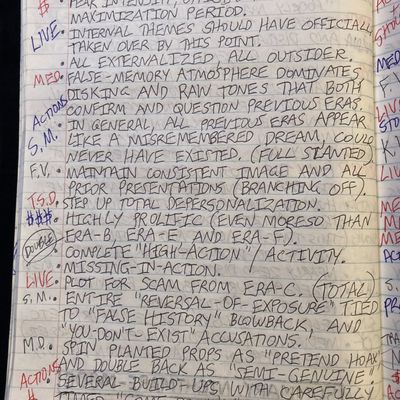 PEAK INTENSITY,
$ MAXIMIZATION PERIOD.
LIVE. • INTERNAL THEMES SHOULD HAVE OFFICIALLY
TAKEN OVER BY THIS POINT.
• ALL EXTERNALIZED, ALL OUTSIDER.
MED. • FALSE-MEMORY ATMOSPHERE DOMINATES
DISKING AND RAW TONES THAT BOTH
ACTIONS CONFIRM AND QUESTION PREVIOUS ERAS.
S.M. • IN GENERAL, ALL PREVIOUS ERAS APPEAR
LIKE A MISREMEMBERED DREAM, COULD
NEVER HAVE EXISTED. (FULL SLANTED)
F.V. • MAINTAIN CONSISTENT IMAGE AND ALL
PRIOR PRESENTATIONS (BRANCHING OFF).
T.S.D. • STEP UP TOTAL DEPERSONALIZATION.
$$$. • HIGHLY PROLIFIC (EVEN MORESO THAN
DOUBLE ERA-B, ERA-E, AND ERA-F).
• COMPLETE "HIGH-ACTION" / ACTIVITY.
• MISSING-IN-ACTION.
LIVE. • PLOT FOR SCAM FROM ERA-C. (TOTAL)
S.M. • ENTIRE "REVERSAL-OF-EXPOSURE" TIED
TO "FALSE HISTORY" BLOWBACK, AND
"YOU-DON'T-EXIST" ACCUSATIONS.
M.D. • SPIN PLANTED PROPS AS "PRETEND HOAX"
AND DOUBLE BACK AS "SEMI-GENUINE".
ACTIONS • SEVERAL BUILD-UPS WITH CAREFULLY
TIMED "COME